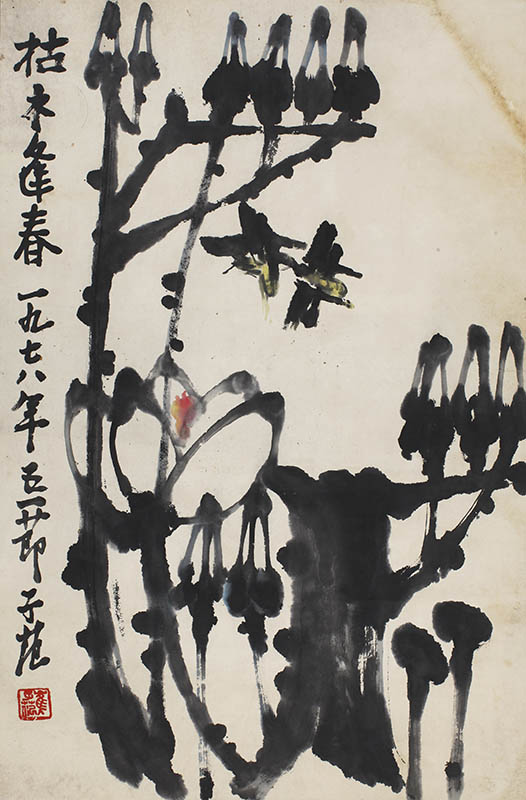 枯木逢春 一九七八年五一節 子范